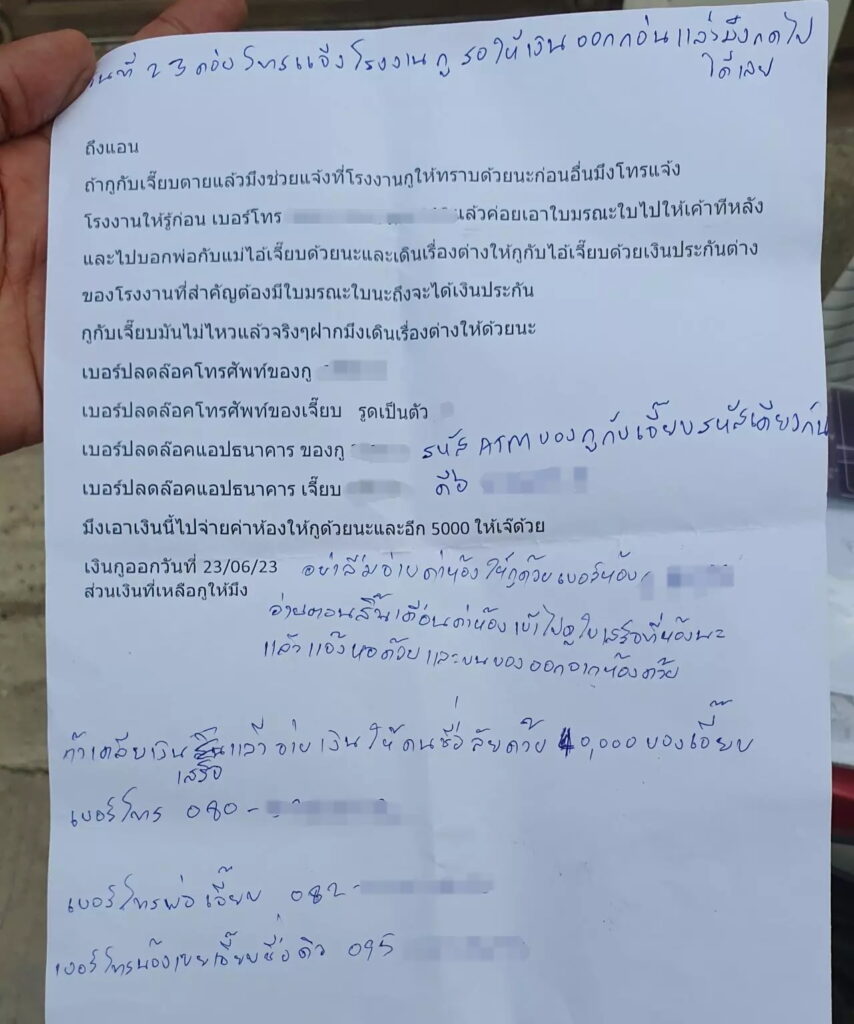 วันที่ 23 ค่อยโทรแจ้งโรงงานกู รอให้เงินออกก่อนแล้วมึงกดไป
ได้เลย
ถึงแอน
ถ้ากูกับเจี๊ยบตายแล้วมึงช่วยแจ้งที่โรงงานกูให้ทราบด้วยนะก่อนอื่นมึงโทรแจ้ง
โรงงานให้รู้ก่อน เบอร์โทร แล้วค่อยเอาใบมรณะใบไปให้เค้าทีหลัง
และไปบอกพ่อกับแม่ไอ้เจี๊ยบด้วยนะและเดินเรื่องต่างให้กูกับไอ้เจี๊ยบด้วยเงินประกันต่าง
ของโรงงานที่สำคัญต้องมีใบมรณะใบนะถึงจะได้เงินประกัน
กูกับเจี๊ยบมันไม่ไหวแล้วจริงๆฝากมึงเดินเรื่องต่างให้ด้วยนะ
เบอร์ปลดล๊อคโทรศัพท์ของกู
เบอร์ปลดล๊อคโทรศัพท์ของเจี๊ยบ รูดเป็นตัว
เบอร์ปลดล๊อคแอปธนาคาร ของกู รหัส ATM ของกูกับเจี๊ยบรหัสเดียวกัน
เบอร์ปลดล๊อคแอปธนาคาร เจี๊ยบ คือ
มึงเอาเงินนี้ไปจ่ายค่าห้องให้กูด้วยนะและอีก 5000 ให้เจ๊ด้วย
เงินกูออกวันที่ 23/06/23 อย่าลืมจ่ายค่าห้องให้กูด้วยเบอร์ห้อง
ส่วนเงินที่เหลือกูให้มึง
จ่ายตอนสิ้นเดือนค่าห้อง เข้าไปดูใบเสร็จที่ห้องนะ
แล้วแจ้งหอด้วยและขนของออกจากห้องด้วย
ถ้าเคลียเงินเสร็จแล้ว จ่ายเงินให้คนชื่อลัยด้วย 40,000 ของเจี๊ยบ
เบอร์โทร 080-
เบอร์โทรพ่อเจี๊ยบ 082-
เบอร์โทรน้องเขยเจี๊ยบชื่อดิว 095